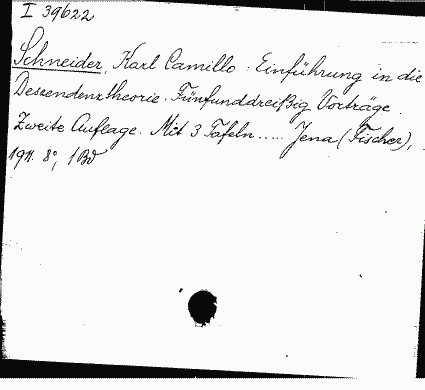 I 39622
Schneider, Karl Camillo : Einführung in die
Deszendenztheorie. Fünfunddreißig Vorträge.
Zweite Auflage. Mit 3 Tafeln..... Jena (Fischer),
1911. 8°, 1 Bd